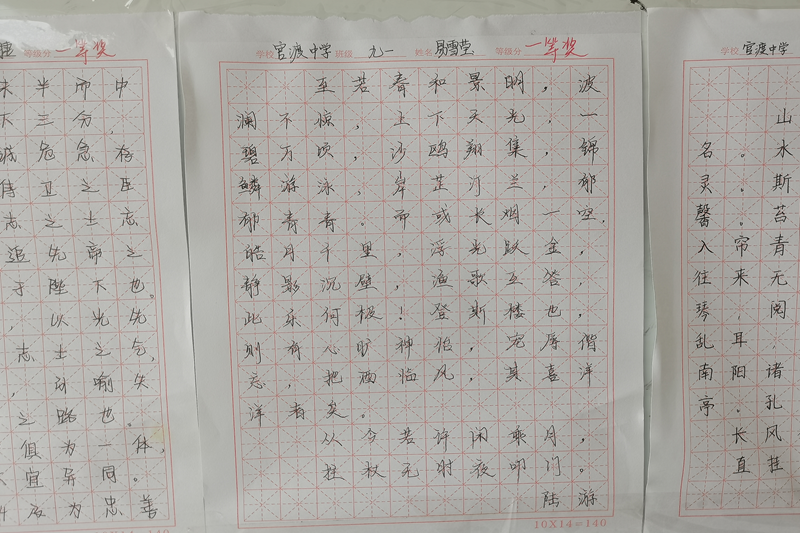 等级分 一等奖
未半而中
下三分，
诚危急存
侍卫之臣
志之士忘
追先帝之
于陛下也。
，以光先
志士之气，
，引喻失
之路也。
俱为一体，
宜异同。
及为忠善
学校 官渡中学 班级 九一 姓名 易雪莹 等级分 一等奖
至若春和景明，波
澜不惊，上下天光，一
碧万顷，沙鸥翔集，锦
鳞游泳，岸芷汀兰，郁
郁青青。而或长烟一空，
皓月千里，浮光跃金，
静影沉壁，渔歌互答，
此乐何极！登斯楼也，
则有心旷神怡，宠辱偕
忘，把酒临风，其喜洋
洋者矣。
从今若许闲乘月，
拄杖无时夜叩门。
陆游
10X14=140
学校 官渡中学
山
名。水
灵。斯
馨。苔
入帘青
往来无
琴，阅
乱耳
南阳诸
亭。孔
长风
直挂